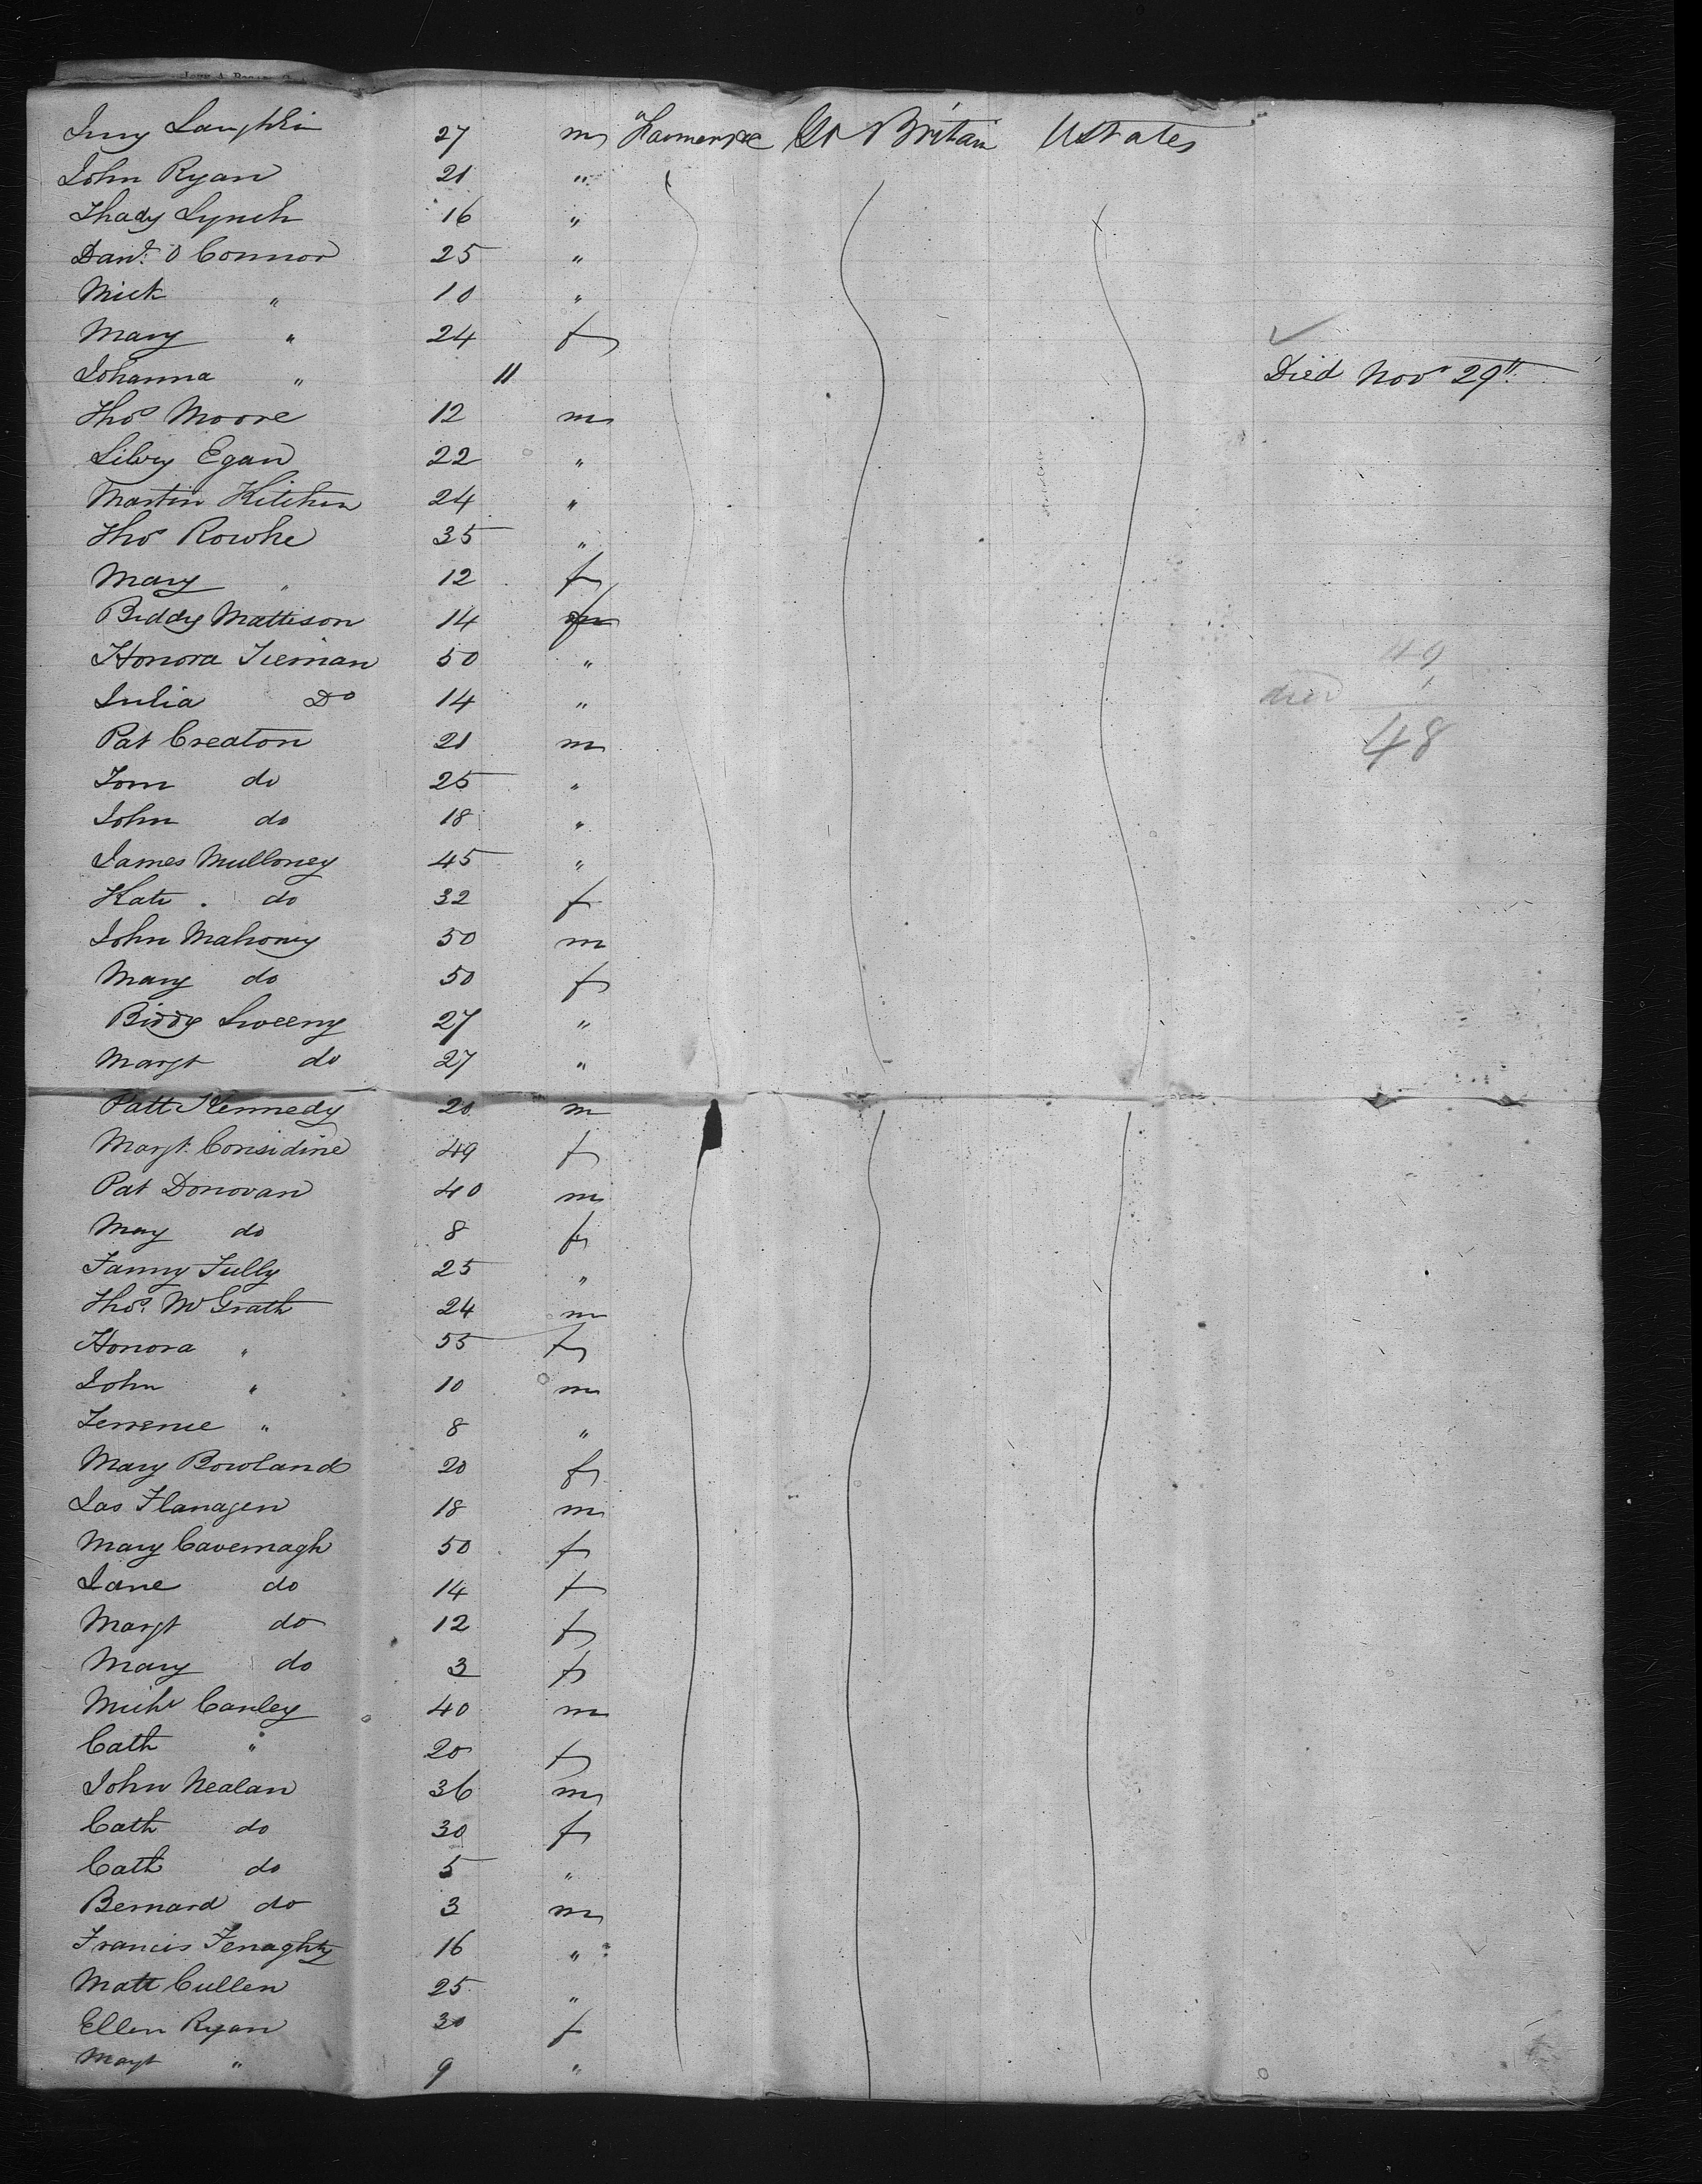 Laughlin 27 m Farmers &c Gt Britain UStates
John Ryan 21 "
Thady Lynch 16 "
Danl O Connor 25 "
Mick " 10 "
Mary " 24 f
Johanna " 11 Died Nov 29th
Thos Moore 12 m
Egan 22 "
Martin Kitchen 24 "
Thos Rowke 35 "
Mary " 12 f
Biddy Mattison 14 f
Honora Tiernan 50 " 49
Julia Do 14 " died 1
Pat Creaton 21 m 48
Tom do 25 "
John do 18 "
James Mulloney 45 "
Kate do 32 f
John Mahoney 50 m
Mary do 50 f
Biddy Sweeny 27 "
Margt do 27 "
Patt Kennedy 20 m
Margt Considine 49 f
Pat Donovan 40 m
May do 8 f
Fanny Tully 25 "
Thos McGrath 24 m
Honora " 55 f
John " 10 m
Terrence " 8 "
Mary Bowland 20 f
Jas Flanagen 18 m
Mary Cavernagh 50 f
Jane do 14 f
Margt do 12 f
Mary do 3 f
Michl Canley 40 m
Cath " 20 f
John Nealan 36 m
Cath do 30 f
Cath do 5 "
Bernard do 3 m
Francis Fenaghty 16 "
Matt Cullen 25 "
Ellen Ryan 30 f
Margt " 9 "